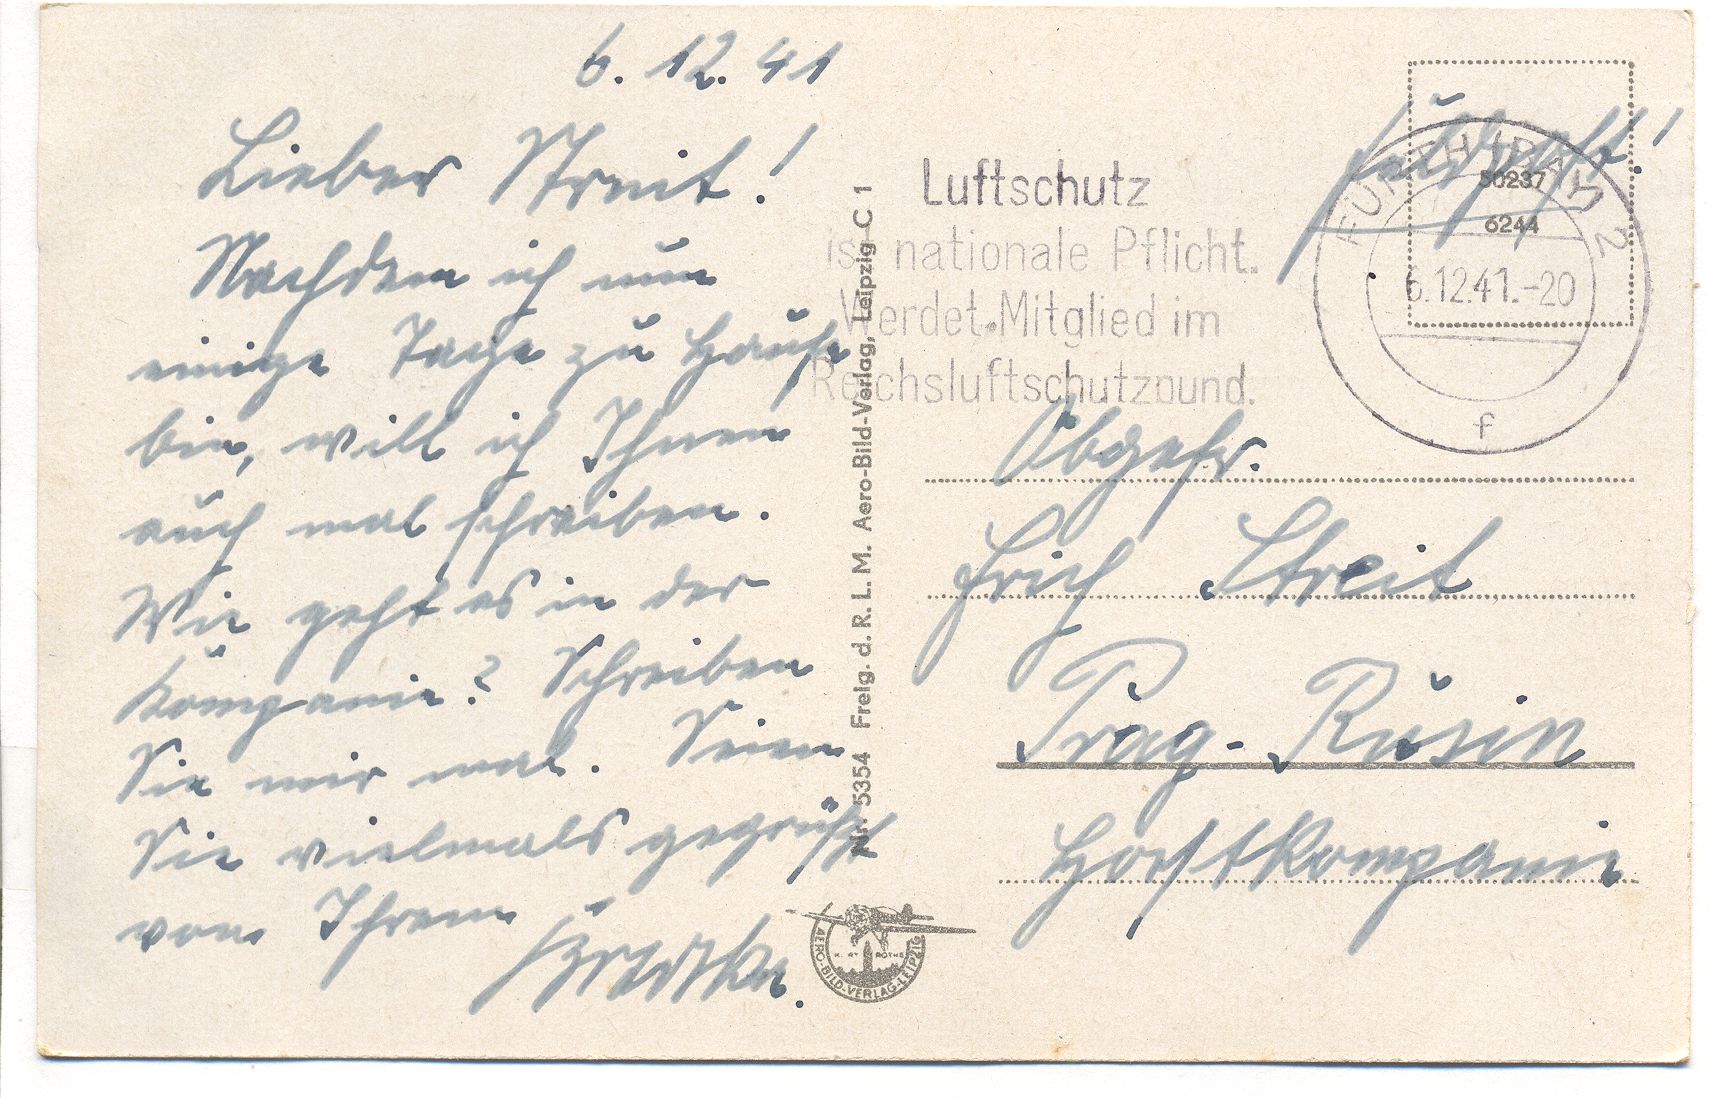 6. 12. 41
Lieber Streit!
Nachdem ich nun
einige Tage zu Hause
bin, will ich Ihnen
auch mal schreiben.
Wie geht es in der
Kompanie? Schreiben
Sie mir mal. Seien
Sie vielmals gegrüßt
von Ihrem
Nr. 5354 Freig. d. R. L. M. Aero-Bild-Verlag, Leipzig C 1
Luftschutz
ist nationale Pflicht.
Werdet Mitglied im
Reichsluftschutzbund.
Feldpost!
50237
6244
FÜRTH (BAY) 2
6.12.41.-20
f
Obgefr.
Erich Streit
Prag-Rusin
Horstkompanie
AERO-BILD-VERLAG-LEIPZIG